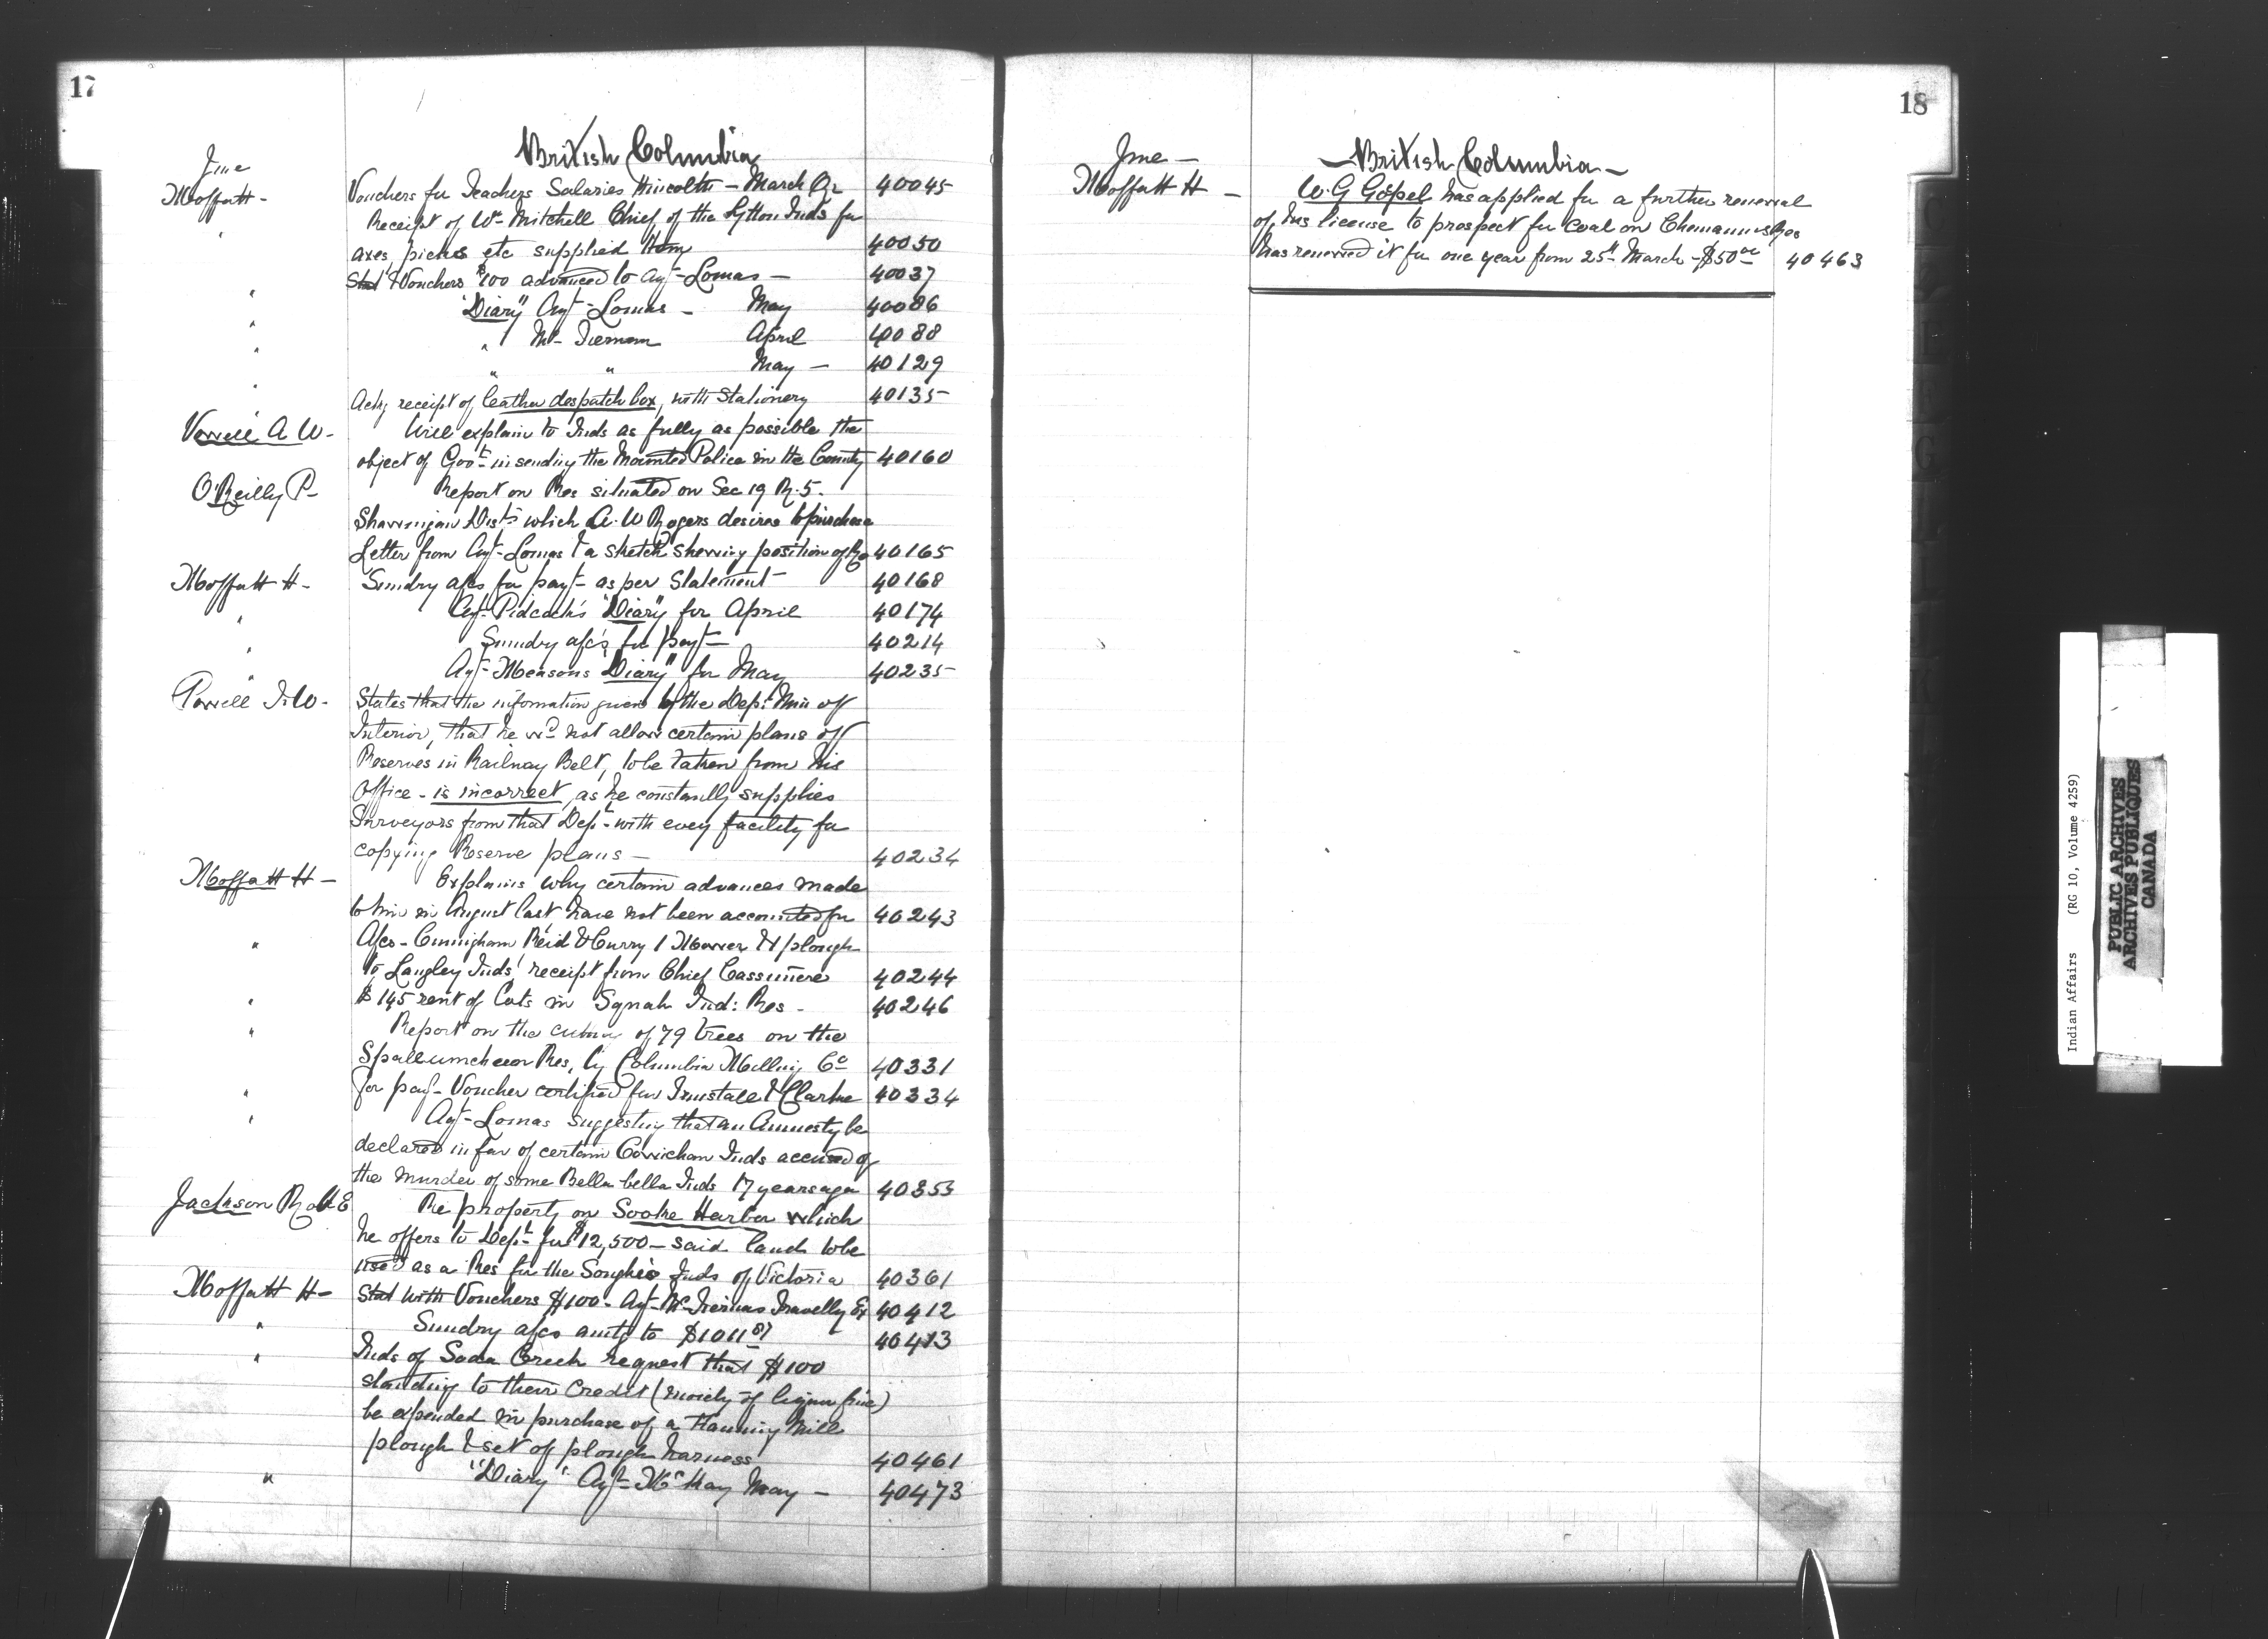 17
British Columbia
June
Moffatt - Vouchers for Teachers Salaries Kincolth - March Qr 40045
" Receipt of Wm Mitchell Chief of the Lytton Inds for
axes, picks etc supplied them 40050
Stat & Vouchers $100 advanced to Agt Lomas - 40037
" "Diary" Agt Lomas - May 40086
" " Mc Tiernan April 40088
" " " May - 40129
" Ackg receipt of leather despatch box, with Stationery 40135
Vowell A W - Will explain to Inds as fully as possible the
object of Govt in sending the Mounted Police in the County 40160
O'Reilly P - Report on Res situated on Sec 19 R. 5.
Shawnigan Dist which A. W Rogers desires to purchase
Letter from Agt Lomas & a sketch shewing position of Res 40165
Moffatt H - Sundry a/cs for payt as per Statement 40168
" Agt Pidcock's "Diary" for April 40174
" Sundry a/c's for payt 40214
" Agt Measons "Diary" for May 40235
Powell I. W - States that the information given by the Dept Min of
Interior, that he wd not allow certain plans of
Reserves in Railway Belt, to be taken from his
Office - is incorrect, as he constantly supplies
Surveyors from that Dept with every facility for
copying Reserve plans - 40234
Moffatt H - Explains why certain advances made
to him in August last have not been accounted for 40243
" A/cs - Cunnigham Reid & Curry 1 Mower & 1 plough
to Langley Inds' receipt from Chief Cassimere 40244
" $145 rent of Lots in Sqnah Ind: Res - 40246
" Report on the cutting of 79 trees on the
Spallumcheen Res, by Columbia Milling Co 40331
" For payt Voucher certified for Tunstall & Clarke 40334
" Agt Lomas suggesting that an Amnesty be
declared in fav of certain Cowichan Inds accused of
the murder of some Bella bella Inds 17 years ago 40353
Jackson Robt E Re property on Sooke Harbor which
he offers to Dept for $12,500 - said land to be
used as a Res for the Songhis Inds of Victoria 40361
Moffatt H - Stat with Vouchers $100 - Agt McTiernans Travellg Ex 40412
" Sundry a/cs amtg to $1011 87 40413
" Inds of Soda Creek request that $100
standing to their credit (moiety of liquor fine)
be expended in purchase of a Fanning Mill
plough & set of plough harness 40461
" "Diary" Agt McKay May - 40473
18
- British Columbia -
June -
Moffatt H - W. G Gospel has applied for a further renewal
of his license to prospect for Coal on Chemainus Res
has renewed it for one year from 25th March - $50 00 40463
Indian Affairs (RG 10, Volume 4259)
PUBLIC ARCHIVES
ARCHIVES PUBLIQUES
CANADA